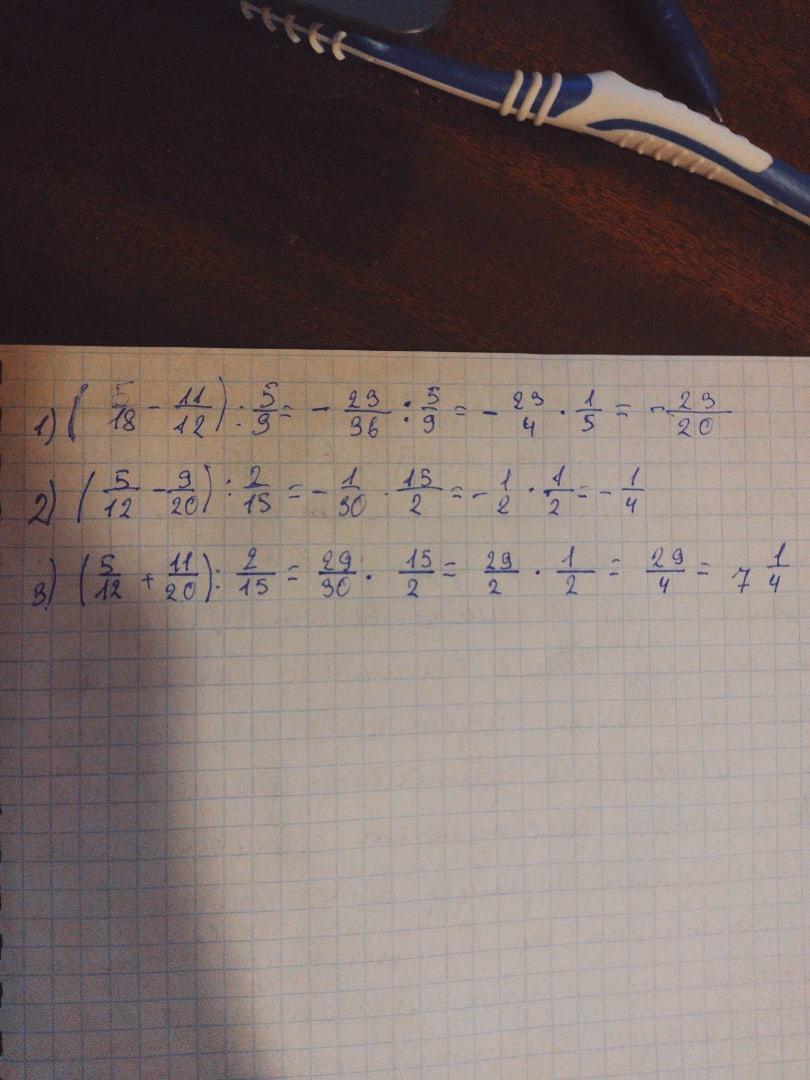 1) (5/18 - 11/12) : 5/9 = - 23/36 : 5/9 = - 23/4 · 1/5 = - 23/20
2) (5/12 - 9/20) : 2/15 = - 1/30 · 15/2 = - 1/2 · 1/2 = - 1/4
3) (5/12 + 11/20) : 2/15 = 29/30 · 15/2 = 29/2 · 1/2 = 29/4 = 7 1/4